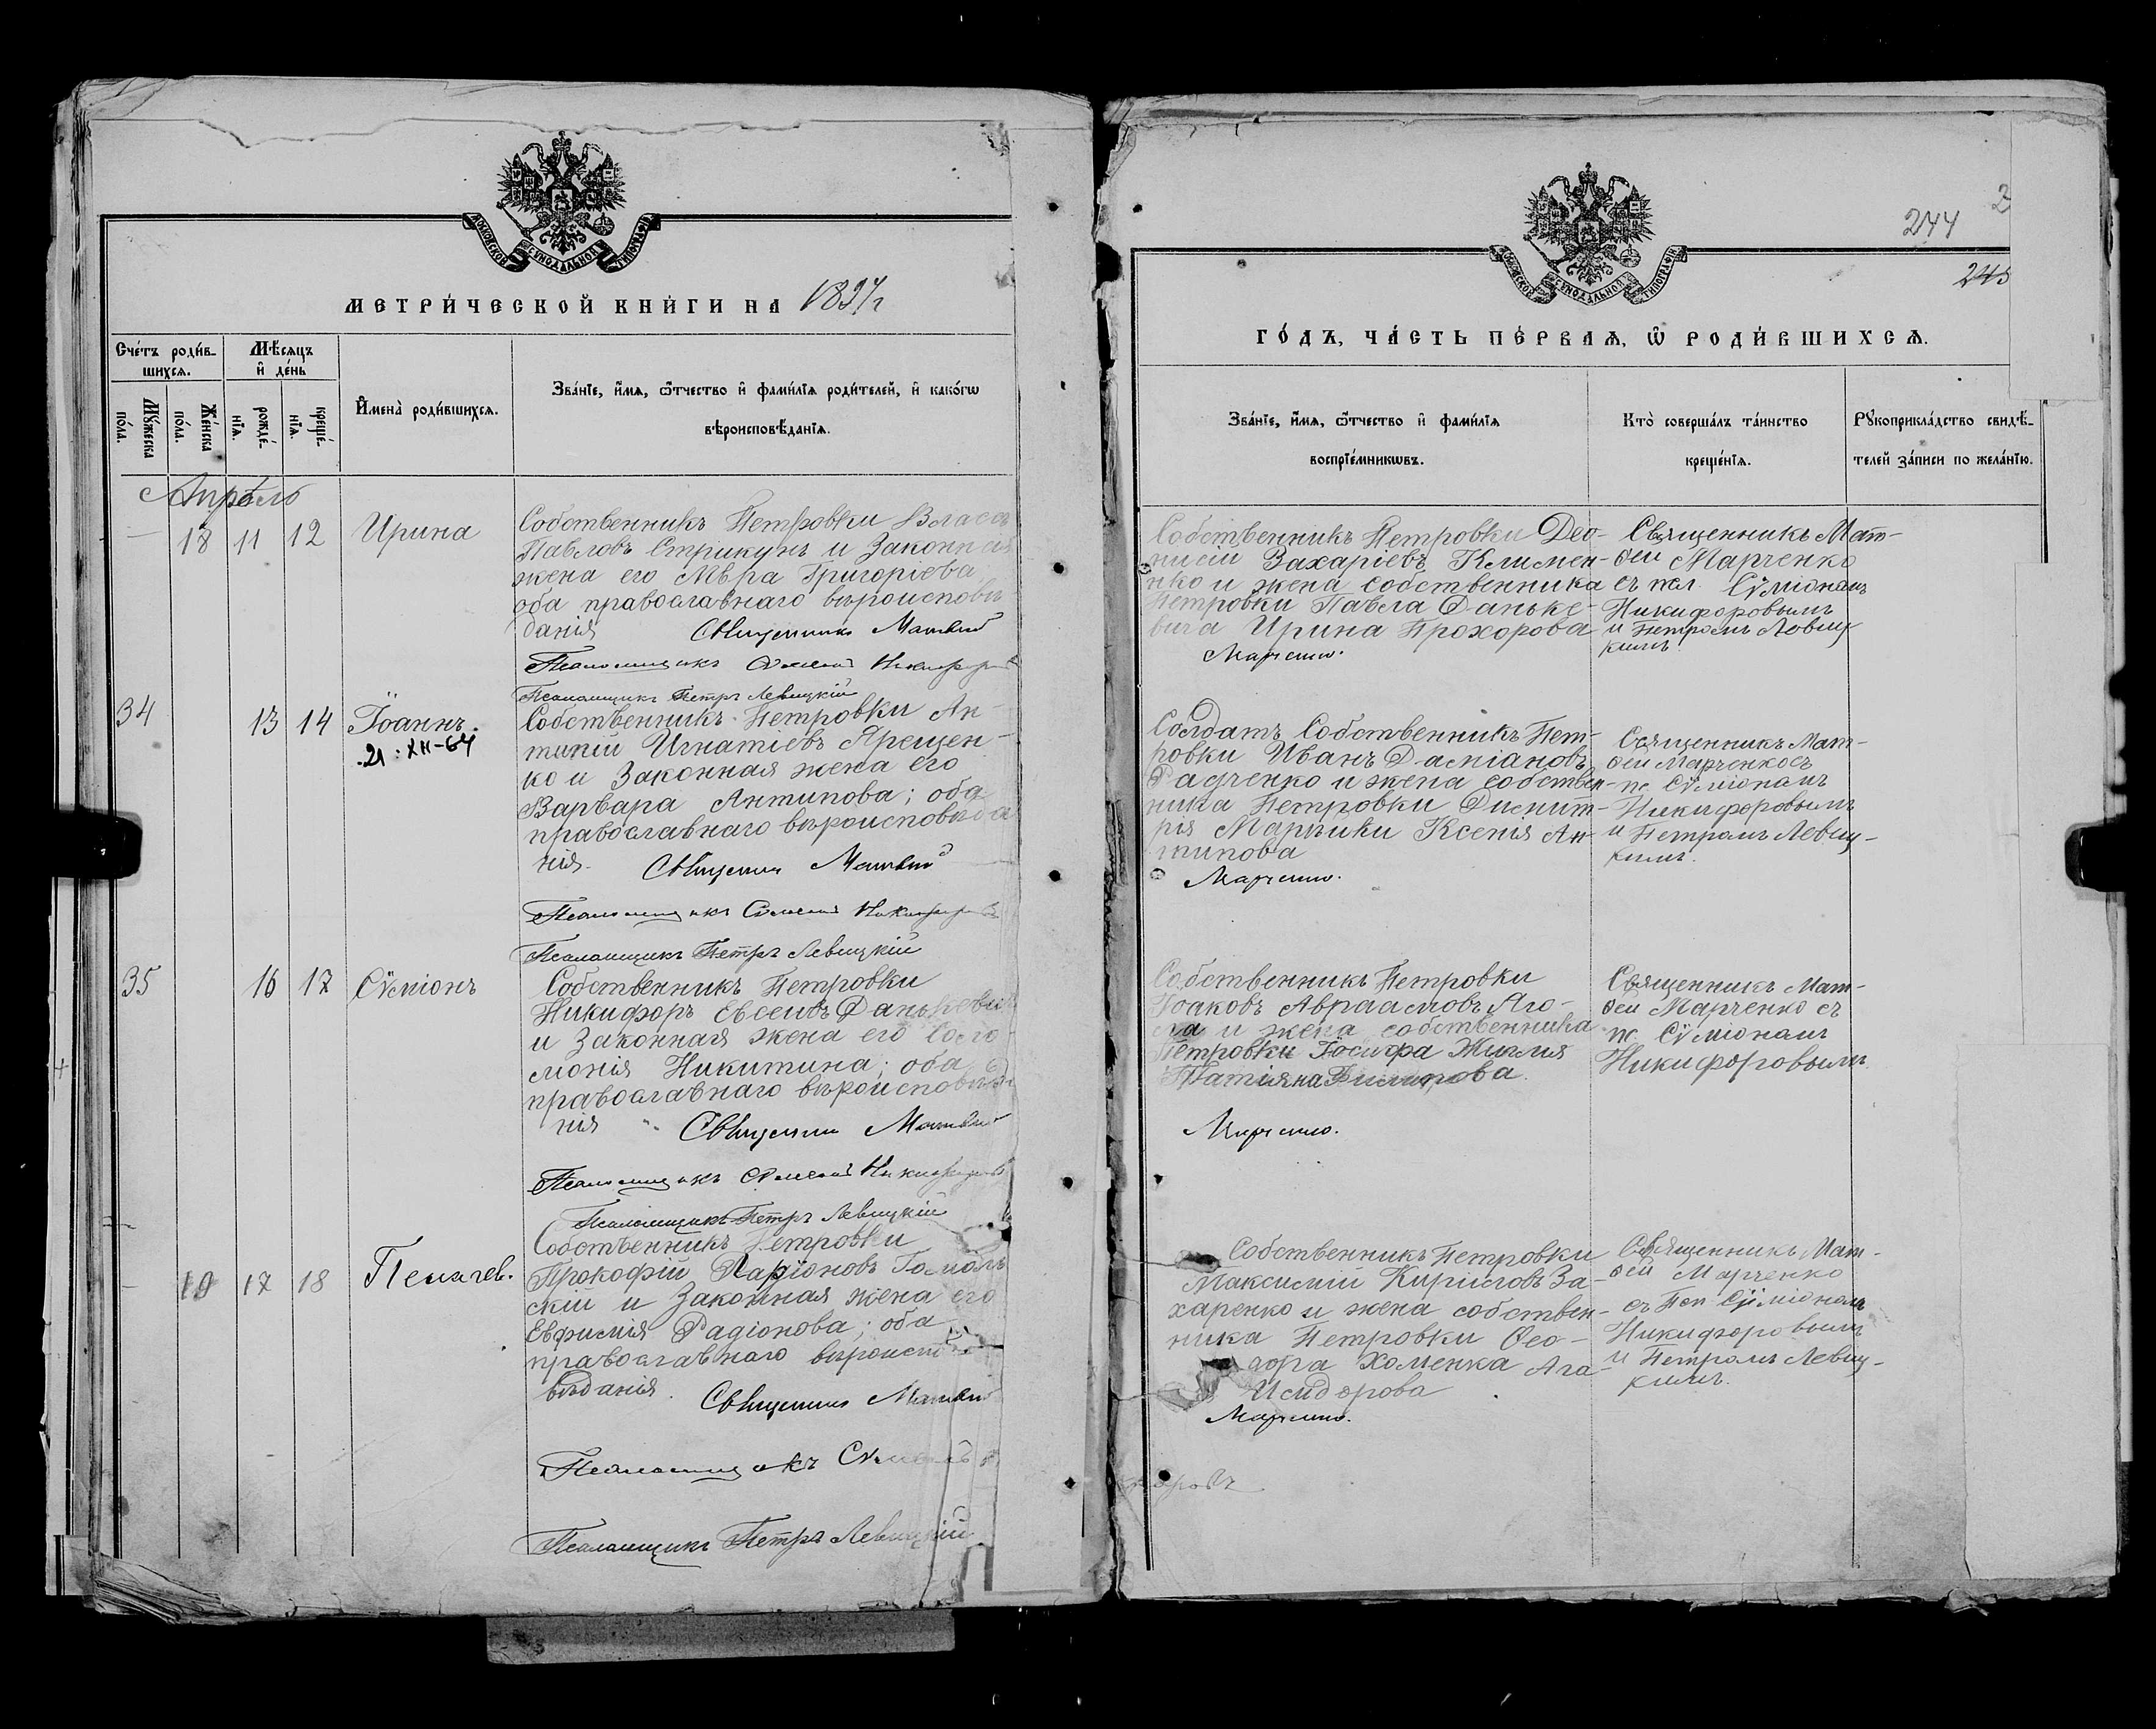 МОСКОВСКОЙ СѴНОДАЛЬНОЙ ТИПОГРАФІИ
МЕТРИ́ЧЕСКОЙ КНИ́ГИ НА 1897 г
Сче́тъ роди́в-
шихсѧ.
Мѣ́сѧцъ
и҆ де́нь
Мꙋ́жеска
по́ла.
Же́нска
по́ла.
рожде́-
нїѧ.
креще́-
нїѧ.
И҆мена̀ роди́вшихсѧ.
Зва́нїе, и҆́мѧ, ѻ҆́тчество и҆ фами́лїѧ роди́телей, и҆ како́гѡ
вѣроисповѣ́данїѧ.
Апрѣль
— 18 11 12 Ирина
Собственникъ Петровки Власъ
Павловъ Стрикунъ и Законная
жена его Мѵра Григоріева
оба православнаго вѣроисповѣ
данія Священникъ Матвій
Псаломщикъ Сѵмеонъ Никифоровъ
Псаломщикъ Петръ Левицкій
34 13 14 Іоаннъ.
21:XII-64
Собственникъ Петровки Ан-
типій Игнатіевъ Ярещен-
ко и Законная жена его
Варвара Антипова; оба
православнаго вѣроисповѣда
нія. Священникъ Матвій
Псаломщикъ Сѵмеонъ Никифоровъ
Псаломщикъ Петръ Левицкій
35 16 17 Сѵміонъ
Собственникъ Петровки
Никифоръ Евсеивъ Данькеви
и Законная жена его Соло-
монія Никитина; оба
православнаго вѣроисповѣда
нія Священникъ Матвій
Псаломщикъ Сѵмеонъ Никифоровъ
Псаломщикъ Петръ Левицкій
— 19 17 18 Пелагея.
Собственникъ Петровки
Прокофій Ларіоновъ
скій и Законная жена его
Евфимія Радіонова; оба
православнаго вѣроиспо
вѣданія. Священникъ Матвій
Псаломщикъ Сѵмеонъ
Псаломщикъ Петръ Левицкій
2
244
245
МОСКОВСКОЙ СѴНОДАЛЬНОЙ ТИПОГРАФІИ
ГО́ДЪ, ЧА́СТЬ ПЕ́РВАѦ, Ѡ҆ РОДИ́ВШИХСѦ.
Зва́нїе, и҆́мѧ, ѻ҆́тчество и҆ фами́лїѧ
воспрїе́мникѡвъ.
Кто̀ соверша́лъ та́инство
креще́нїѧ.
Рꙋкоприкла́дство свидѣ́-
телей за́писи по жела́нїю.
Собственникъ Петровки Део-
нисій Захаріевъ Климен-
нко и жена собственника
Петровки Павла Даньке-
вича Ирина Прохорова
Марченко.
Священникъ Мат-
ѳей Марченко
съ псал. Сѵміономъ
Никифоровымъ
и Петромъ Левиц
кимъ
Солдатъ Собственникъ Пет-
ровки Иванъ Даміановъ
Радченко и жена собствен-
ника Петровки Димит-
рія Ксенія Ан-
типова
Марченко.
Священникъ Мат-
ѳей Марченко съ
пс. Сѵміономъ
Никифоровымъ
и Петромъ Левиц-
кимъ.
Собственникъ Петровки
Іоаковъ Авраамовъ Яго-
да и жена собственника
Петровки Іосифа
Татіяна Филипова.
Марченко.
Священникъ Мат-
ѳей Марченко съ
пс Сѵміономъ
Никифоровымъ
Собственникъ Петровки
Максимій Кириловъ За-
харенко и жена собствен-
ника Петровки Ѳео-
дора Хоменка Ага-
Исидорова
Марченко.
Священникъ Мат-
ѳей Марченко
съ Пса Сѵміономъ
Никифоровымъ
и Петромъ Левиц-
кимъ.